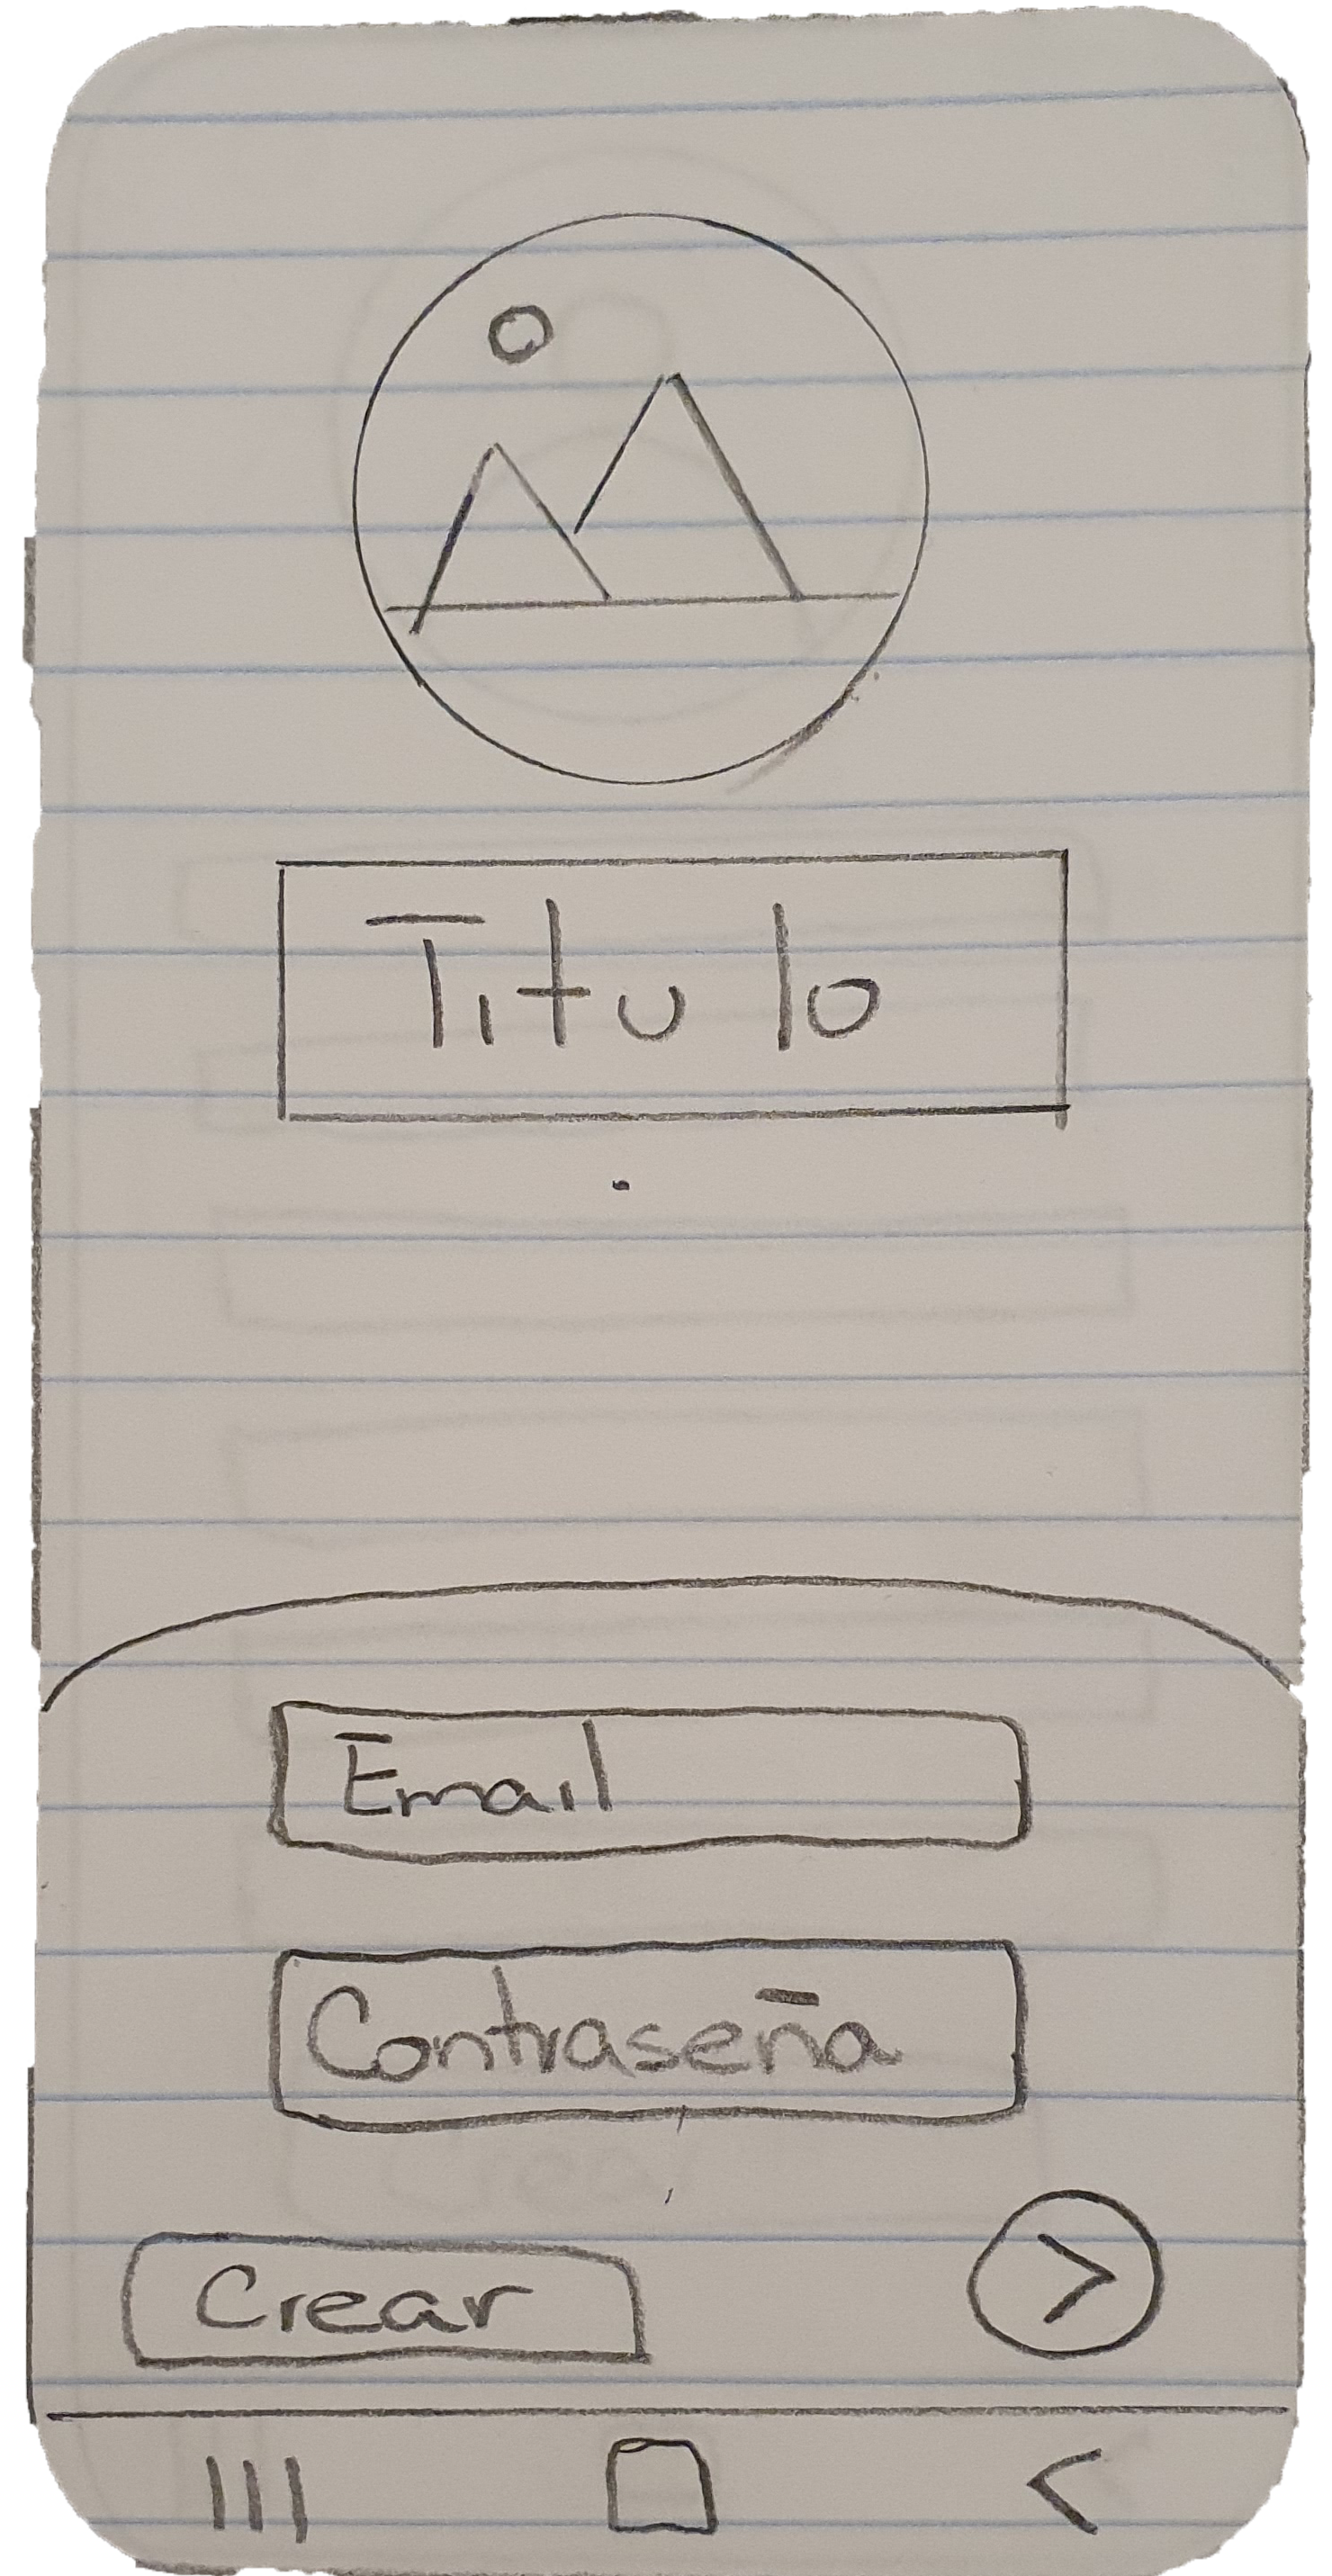 Titulo
Email
Contraseña
Crear